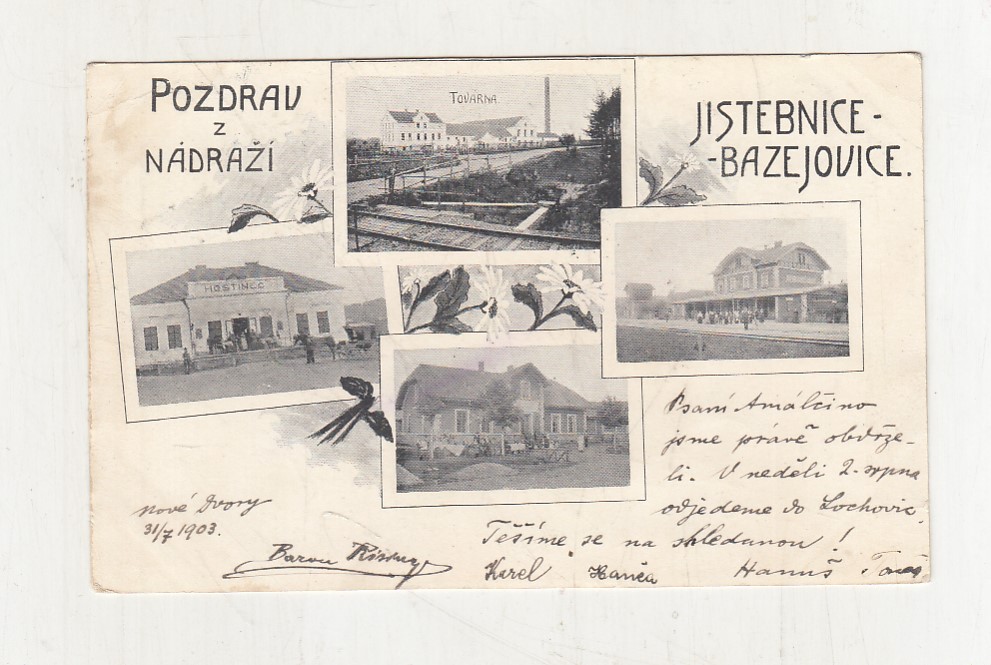 POZDRAV
Z
NÁDRAŽÍ
TOVÁRNA.
JISTEBNICE-
-BAZEJOVICE.
HOSTINEC
Psaní Amálčino
jsme právě obdrže-
li. V neděli 2. srpna
odjedeme do Lochovic.
Těšíme se na shledanou!
Nové Dvory
31/7 1903.
Karel Hanča Hanuš